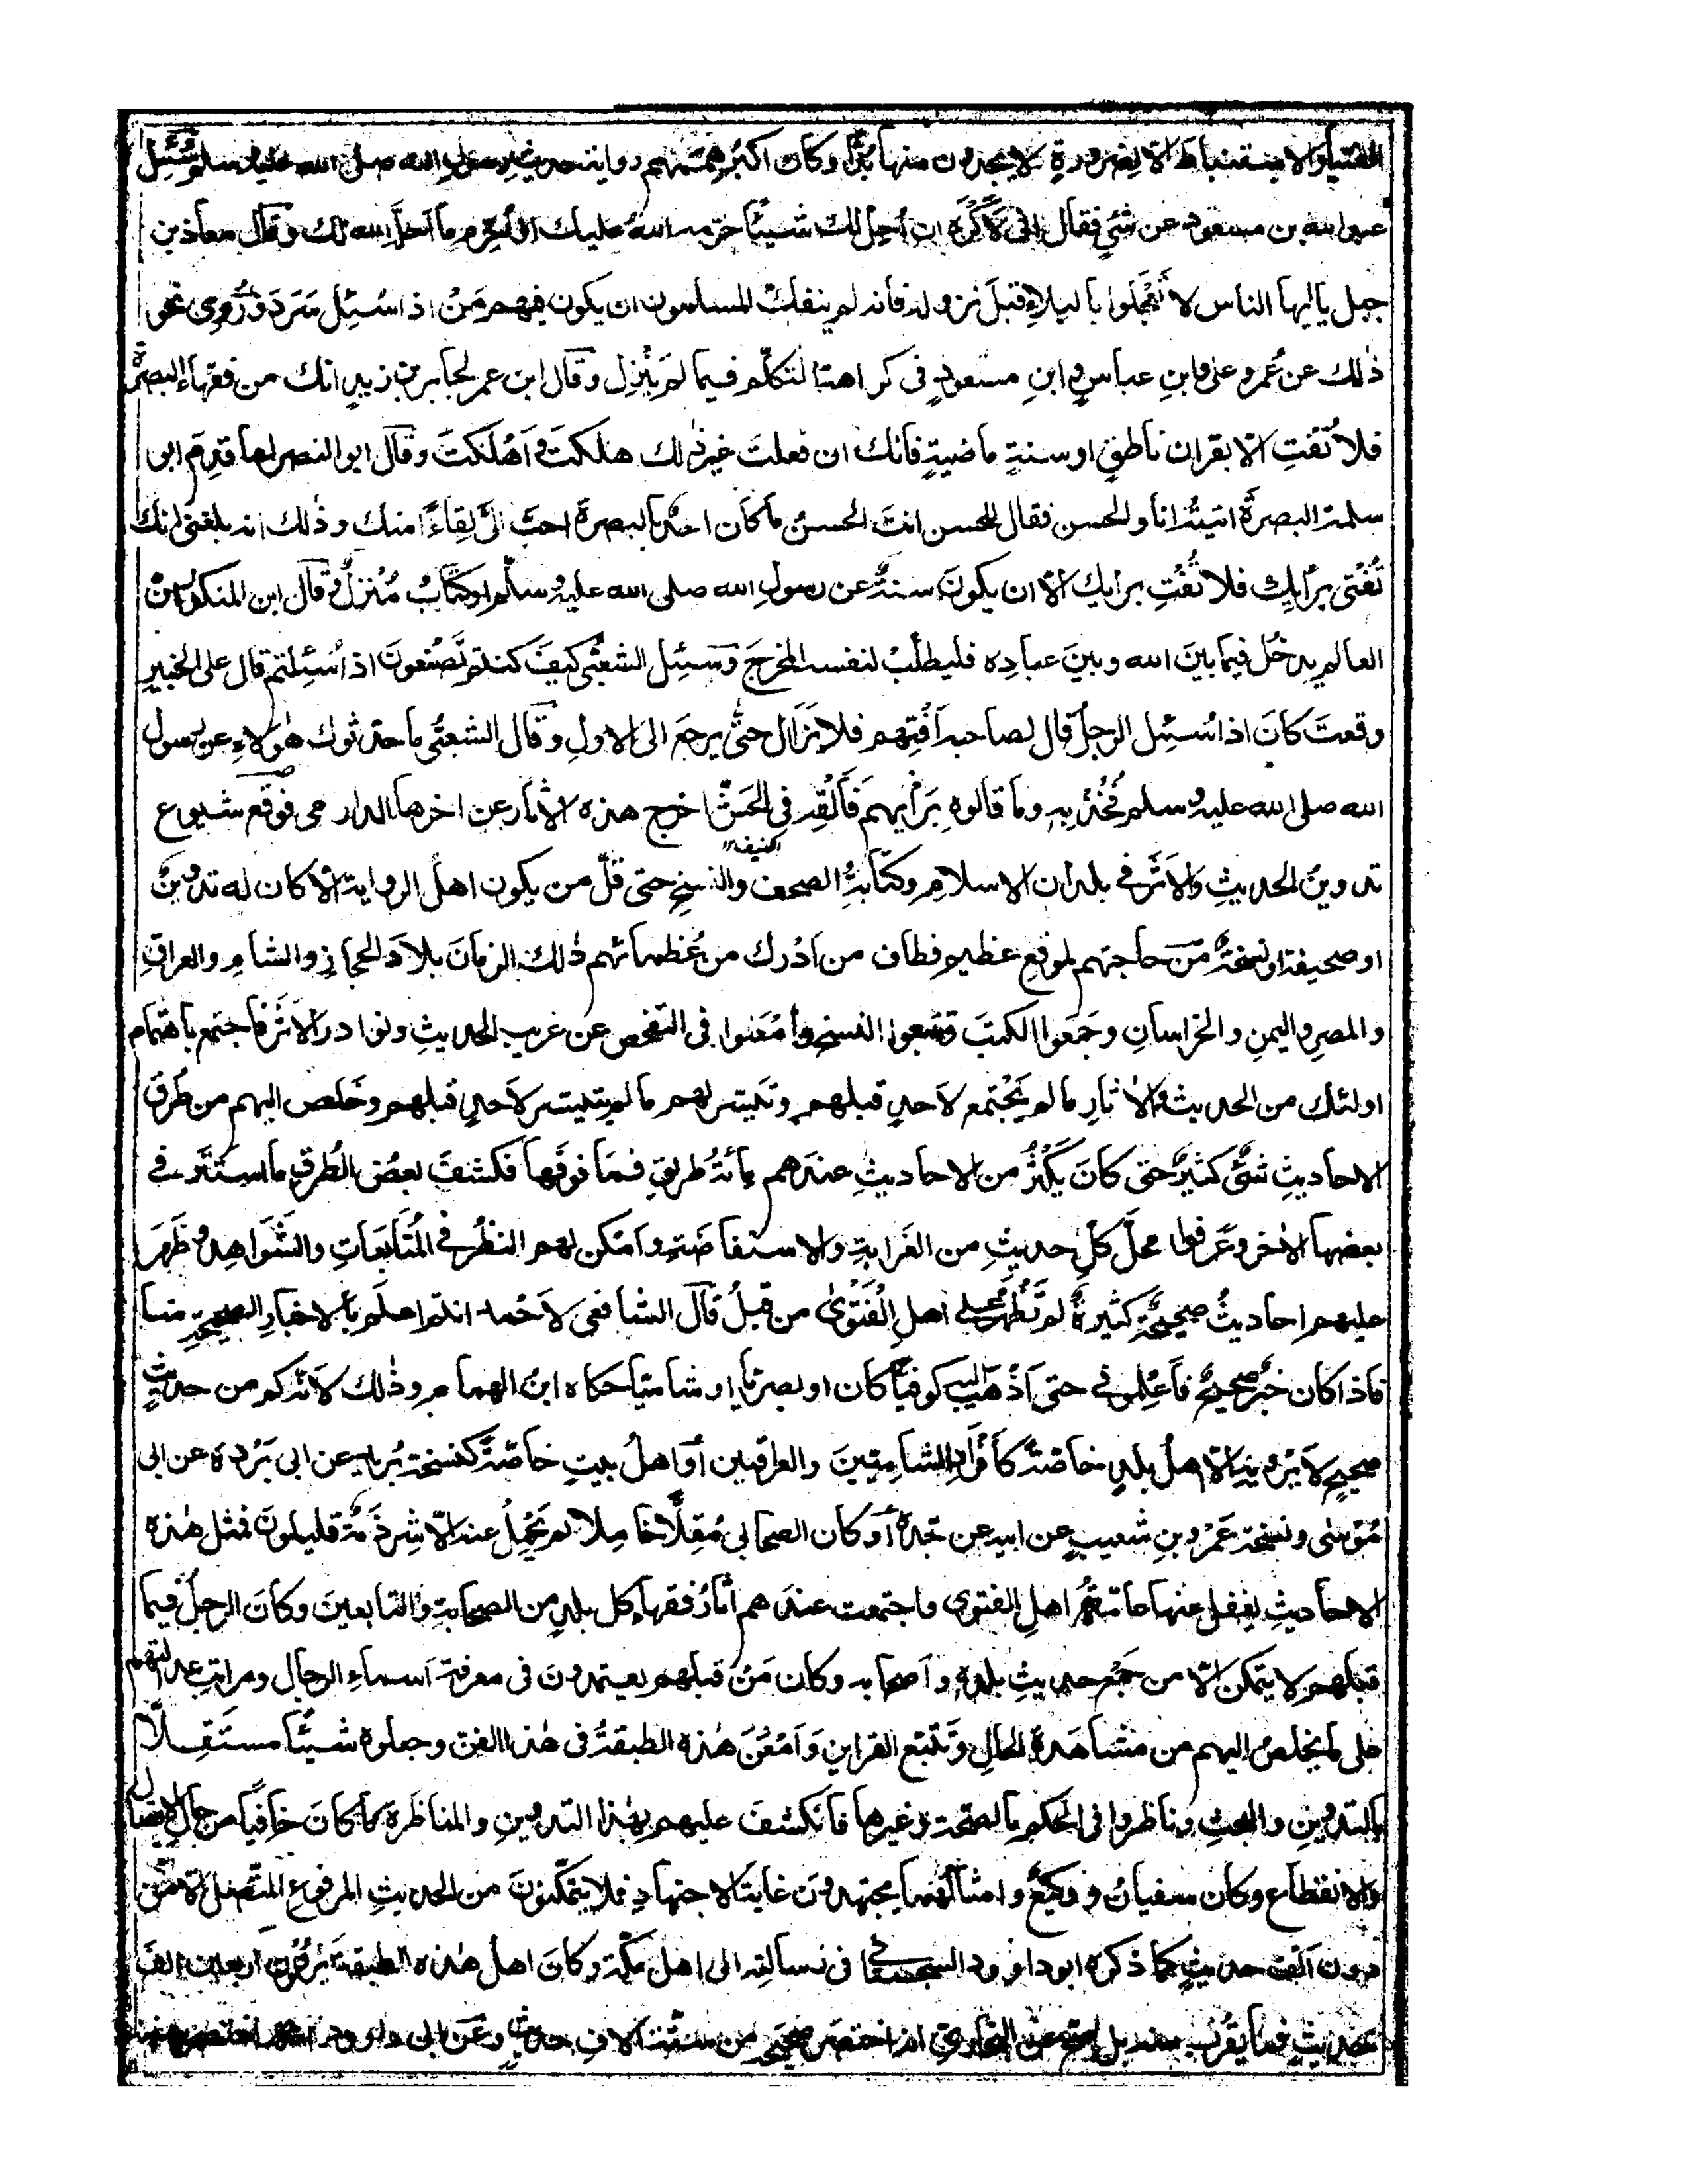 الفتيا والاستنباط الا لضرورةٍ لا يجدون منها بُدًّا وكان اكبرُ همّهم رواية حديثِ رسولِ الله صلى الله عليه وسلم وسُئِل
عبد الله بن مسعود عن شئٍ فقال انى لَأَكْرَهُ ان اُحِلَّ لك شيئًا حرّمه اللهُ عليك او اُحَرِّم ما اَحلَّه الله لك وقال معاذ بن
جبل يا ايها الناس لا تُعَجِّلوا بالبلاءِ قبلَ نزوله فانه لم ينفكّ المسلمون ان يكون فيهم مَنْ اذا سُئِل سَرَدَ ورُوِى نحو
ذٰلك عن عُمر وعلى وابنِ عباسٍ وابنِ مسعودٍ فى كراهة التكلّم فيما لم يَنْزِل وقال ابن عمر لجابر بن زيدٍ انك من فقهاء البصرة
فلا تُفْتِ الّا بقران ناطقٍ او سنةٍ ماضيةٍ فانك ان فعلتَ غيرَ ذٰلك هلكتَ واَهْلَكْتَ وقال ابو النصر لما قدِم ابو
سلمة البصرةَ اتيتُه انا والحسن فقال للحسن انتَ الحسنُ ما كان احدٌ بالبصرة احبَّ الىَّ لِقاءً منك وذٰلك انه بلغنى انك
تُفْتى برأيك فلا تُفْتِ برايك الّا ان يكونَ سنةٌ عن رسولِ الله صلى الله عليه وسلم او كتابٌ مُنْزَلٌ وقال ابن المنكدر ان
العالم يدخُل فيما بينَ الله وبينَ عبادِه فليطلُبْ لنفسه المخرجَ وسئِل الشعبى كيفَ كنتم تَصْنعونَ اذا سُئِلتم قال على الخبيرِ
وقعتَ كانَ اذا سُئِل الرجلُ قال لصاحبه اَفْتِهِم فلا يَزَال حتى يرجعَ الى الاولِ وقال الشعبى ما حدّثوك هٰؤلاءِ عن رسول
الله صلى الله عليه وسلم فخُذْ بِه وما قالوه بِرَأيهم فَاَلْقِه فى الحَشّ اخرج هذه الاٰثار عن اخرها الدارمى فوقع شيوع
كنيف
تدوينُ الحديثِ والاَثَرِ فى بلدان الاسلامِ وكتابةُ الصحف والنسخِ حتى قلّ من يكون اهلَ الرواية الّا كان له تدوينٌ
او صحيفة او نسخةٌ مّن حاجتهم لموقعٍ عظيمٍ فطاف من اَدْرك من عُظمائهم ذٰلك الزمانَ بلادَ الحجازِ والشامِ والعراقِ
والمصرِ واليمنِ والخراسانِ وجَمَعُوا الكتبَ وتتبعوا النسخ واَمْعَنوا فى التفحص عن غريب الحديثِ ونوادر الاَثَر فاجتمع باهتمام
اولئك من الحديث والاٰثارِ ما لم يَجْتمع لاَحدٍ قبلهم وتيسّر لهم ما لم يتيسر لاَحدٍ قبلهم وخَلَص اليهم من طُرقِ
الاحاديثِ شئٌ كثيرٌ حتى كانَ يَكْثُرُ من الاحاديثِ عندَهم مائةُ طريقٍ فما فوقَها فكشفَ بعضُ الطُرقِ ما استَتَر فى
بعضها الاٰخر وعَرفوا محلَّ كلِّ حديثٍ من الغَرابةِ والاستفاضَةِ واَمكن لهم النظرُ فى المُتابَعَاتِ والشَوَاهد وظَهَرَ
عليهم احاديثُ صحيحةٌ كثيرةٌ لم تَظْهَرْ على اهلِ الفَتْوىٰ من قبلُ قال الشافعى لاَحمد انتم اعلَم بالاخبارِ الصحيحةِ منا
فاذا كان خبرٌ صحيحٌ فاَعْلِمونى حتى اَذْهَبَ اليه كوفيًّا كان او بصريًّا او شاميًّا حكاه ابنُ الهمام وذٰلك لاَنه كم من حديثٍ
صحيحٍ لا يَرْويه الّا اهلُ بلدٍ خاصّةً كاَفْرادِ الشاميّينَ والعراقيين اَوْ اهلُ بيتٍ خاصّةً كنسخةِ بُريدٍ عن ابى بُرْدةَ عن ابى
مُوسٰى ونسخة عَمْرِو بنِ شعيبٍ عن ابيه عن جدّه اَو كان الصحابى مُقِلًّا خامِلا لم يَحْمِلْ عنه الّا شِرذِمةٌ قليلونَ فمثل هٰذه
الاحاديثِ يغفل عنها عامّةُ اهلِ الفتوى واجتمعت عندَهم اٰثارُ فقهاءِ كل بلدٍ من الصحابةِ والتابعينَ وكانَ الرجلُ فيما
قبلهم لا يتمكن الّا من جَمْعِ حديثِ بلده واَصحابه وكان مَنْ قبلهم يعتمدونَ فى معرفة اَسماءِ الرجال ومراتبِ عدالتهم
على ما يخلصُ اليهم من مشاهَدةِ الحالِ وتَتَبّع القراينِ واَمْعَنَ هٰذه الطبقةُ فى هٰذا الفنّ وجعلوه شيئًا مستقِلًّا
بالتدوينِ والبحثِ وناظروا فى الحكم بالصحة وغيرها فانكشفَ عليهم بهٰذا التدوينِ والمناظرة ما كانَ خافيًا من حالِ الاتصال
والانقطاع وكان سفيانُ ووكيعٌ وامثالُهما يجتهدونَ غايةَ الاجتهادِ فلا يتمكّنونَ من الحديثِ المرفوعِ المتّصل الّا من
دون اَلف حديثٍ كما ذكره ابو داؤد السجستانى فى رسالته الى اهل مكّة وكانَ اهلُ هٰذه الطبقةِ يَرْوُونَ اربعين الفَ
حديثٍ فما يقرُب منه بل صح عن البخارىّ انه اختصَر صحيحه من ستّة الافِ حديثٍ وعَن ابى داؤد انه اختصر